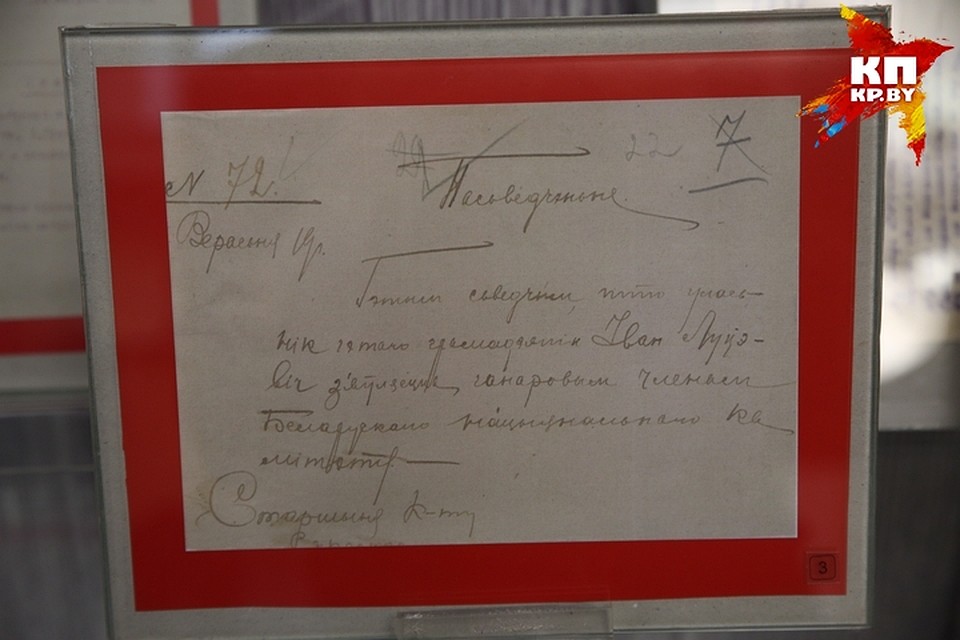 КП
KP.BY
N 72.
22 7
Пасьведчэньне.
Верасьня 19 р.
Гэтым сьведчым, што улась-
нік гэтаго грамадзянін Іван Луцэ-
віч з'яўляецца ганаровым членам
Беларускаго нацыянальнаго ка
мітэту.
Старшыня К-ту
3